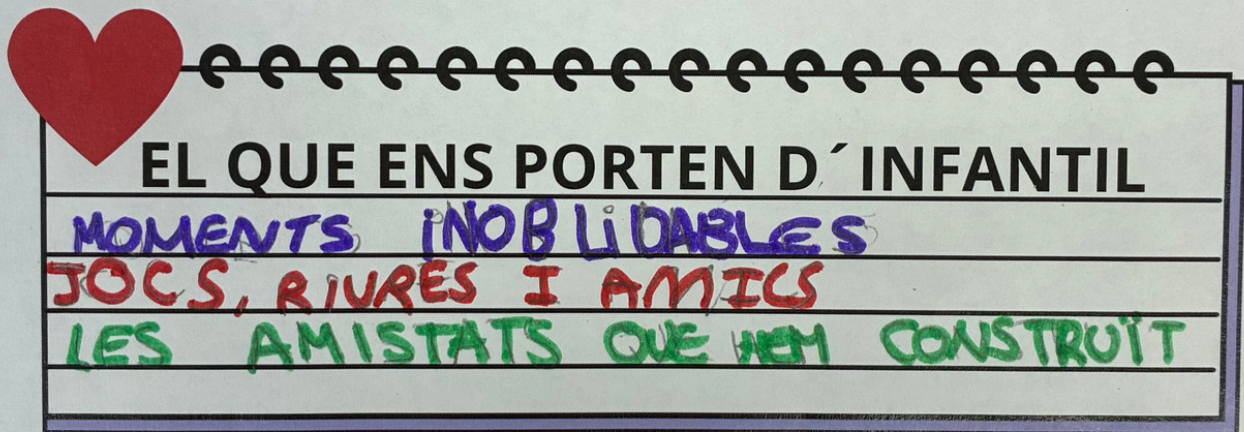 EL QUE ENS PORTEN D´INFANTIL
MOMENTS iNOBLiDABLES
JOCS, RIURES I AMICS
LES AMISTATS QUE HEM CONSTRUÏT